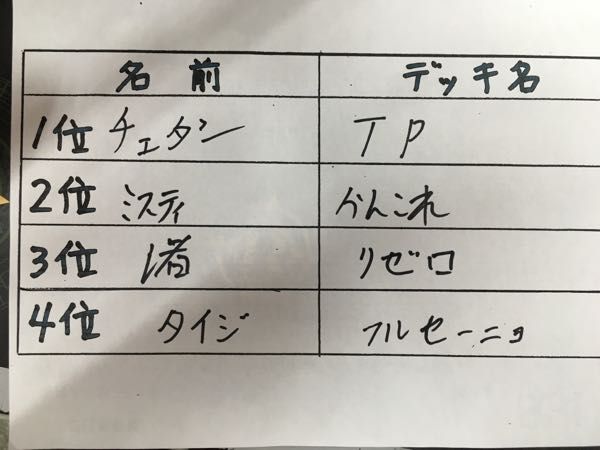 名前 デッキ名
1位 チェタン TP
2位 ミスティ かんこれ
3位 リゼロ
4位 タイジ フルセーニョ